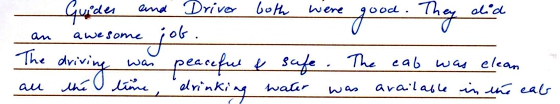 Guides and Driver both were good. They did
an awesome job.
The driving was peaceful & safe. The cab was clean
all the time, drinking water was available in the cab